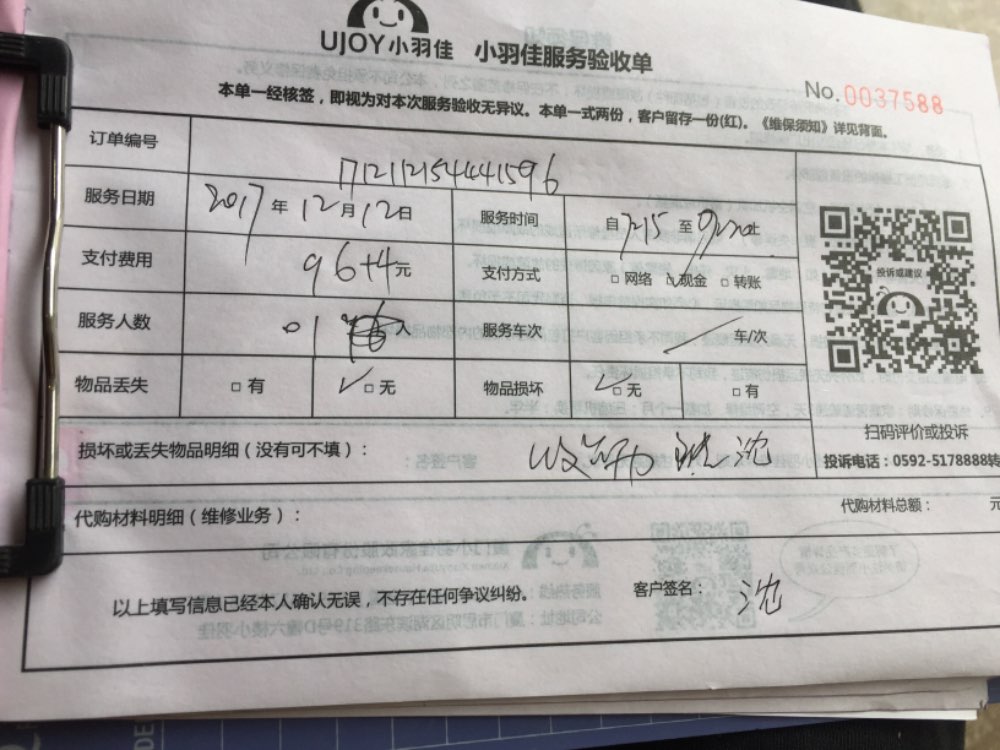 UJOY小羽佳 小羽佳服务验收单
No.0037588
本单一经核签，即视为对本次服务验收无异议。本单一式两份，客户留存一份(红)。《维保须知》详见背面。
订单编号 1712112154441596
服务日期 2017年12月12日 服务时间 自 至 止
支付费用 96+4元 支付方式 □网络 □现金 □转账
服务人数 01 人 服务车次 车/次
物品丢失 □有 □无 物品损坏 □无 □有
投诉或建议
扫码评价或投诉
投诉电话：0592-5178888转
损坏或丢失物品明细（没有可不填）：
代购材料明细（维修业务）： 代购材料总额： 元
以上填写信息已经本人确认无误，不存在任何争议纠纷。 客户签名： 沈